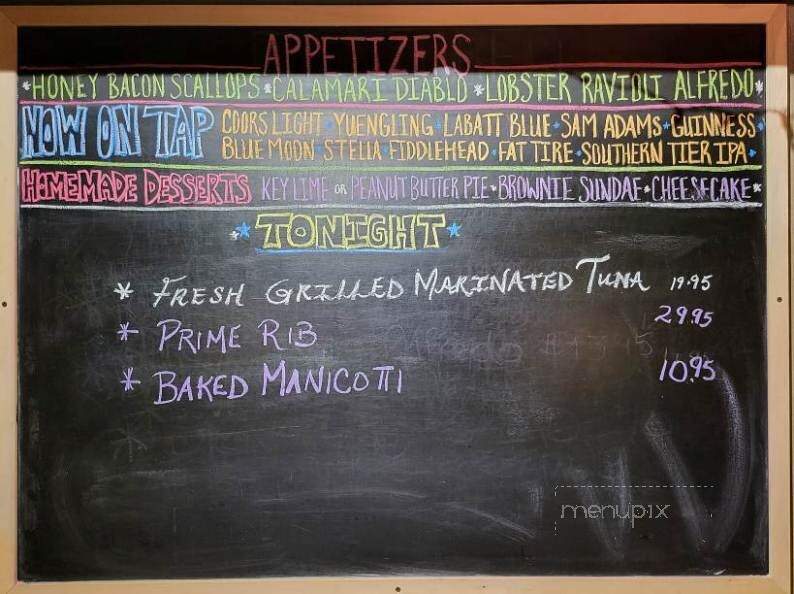 APPETIZERS
*HONEY BACON SCALLOPS*CALAMARI DIABLO *LOBSTER RAVIOLI ALFREDO*
NOW ON TAP COORS LIGHT * YUENGLING * LABATT BLUE * SAM ADAMS * GUINNESS *
BLUE MOON * STELLA * FIDDLEHEAD * FAT TIRE * SOUTHERN TIER IPA *
HOMEMADE DESSERTS KEY LIME OR PEANUT BUTTER PIE * BROWNIE SUNDAE * CHEESECAKE *
* TONIGHT *
* FRESH GRILLED MARINATED TUNA 19.95
* PRIME RIB 29.95
* BAKED MANICOTTI 10.95
menupix